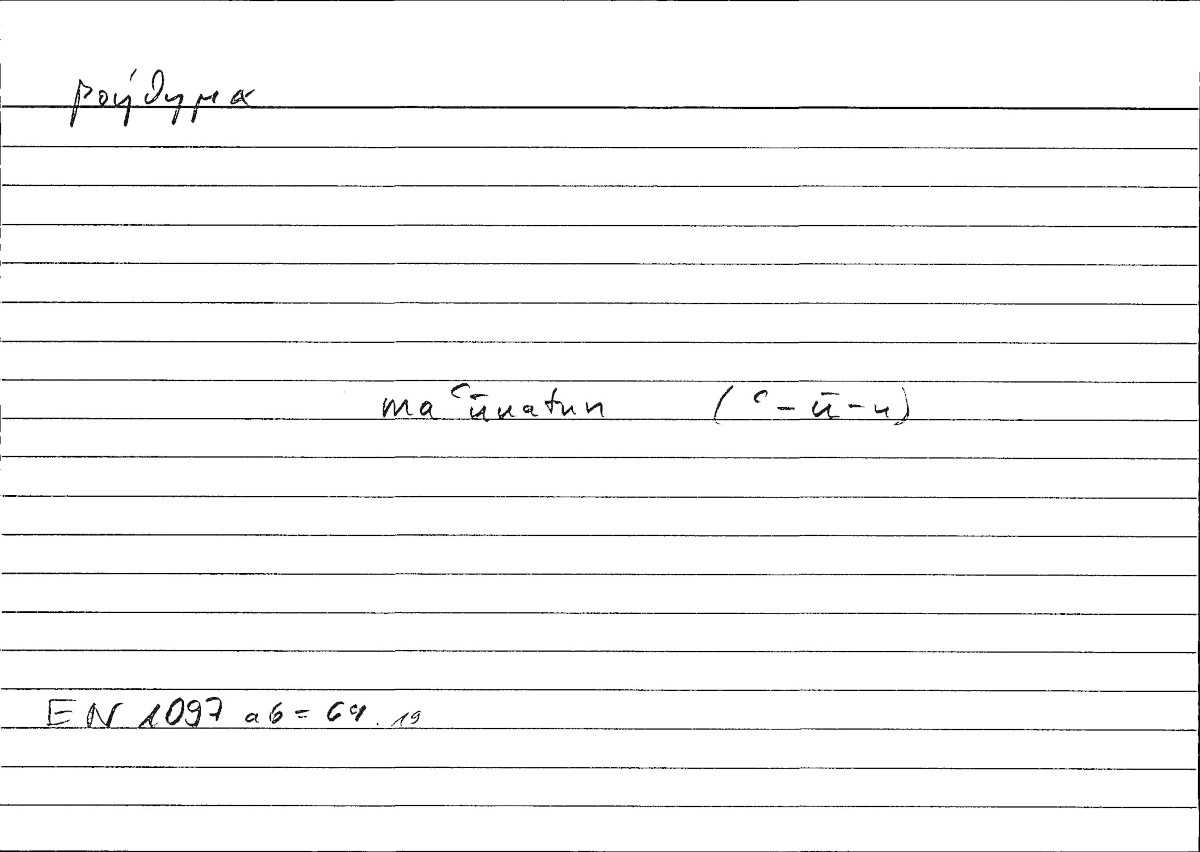 βοήθημα
maʿūnatun (ʿ-ū-n)
EN 1097 a6 = 69.19